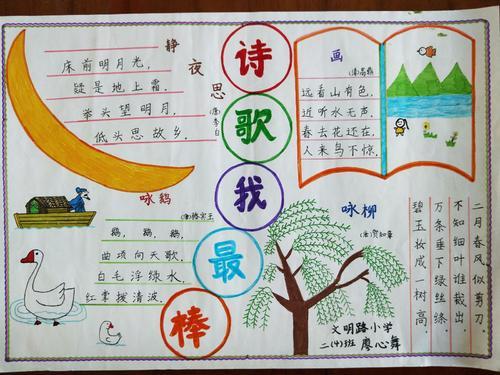 诗歌我最棒
静夜思
(唐)李白
床前明月光,
疑是地上霜。
举头望明月,
低头思故乡。
画
远看山有色,
近听水无声。
春去花还在,
人来鸟不惊。
咏鹅
(唐)骆宾王
鹅,鹅,鹅,
曲项向天歌,
白毛浮绿水,
红掌拨清波。
咏柳
(唐)贺知章
碧玉妆成一树高,
万条垂下绿丝绦。
不知细叶谁裁出,
二月春风似剪刀。
文明路小学
二(4)班 廖心舞